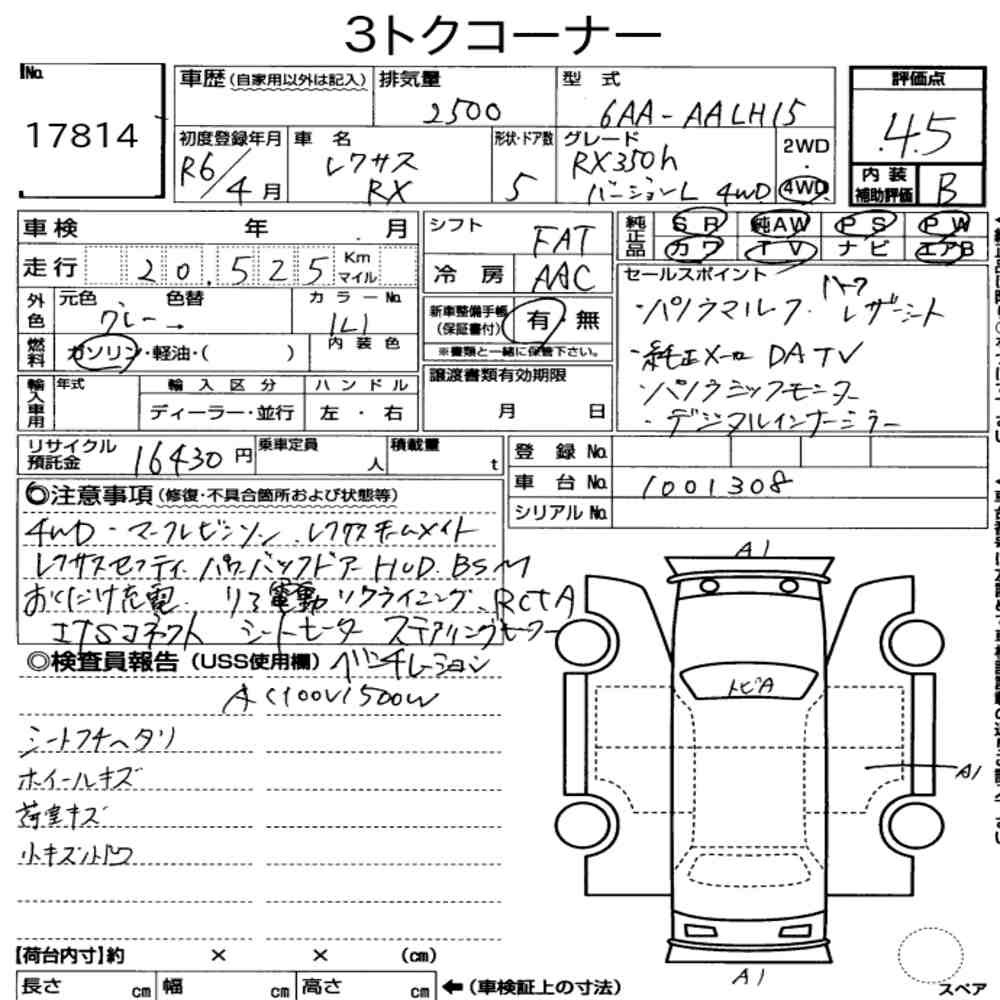 3トクコーナー
No.
17814
車歴(自家用以外は記入)
排気量
2500
型 式
6AA-AALH15
評価点
4.5
初度登録年月
R6/4月
車 名
レクサス
RX
形状・ドア数
5
グレード
RX350h
バージョンL 4WD
2WD
・
4WD
内装
補助評価
B
車検 年 月
走行 20,525 Km
マイル
外色
元色 色替
グレー →
カラーNo.
1L1
燃料
ガソリン・軽油・( )
内装色
輸入車用
年式
輸入区分
ディーラー・並行
ハンドル
左 ・ 右
シフト
FAT
冷 房
AAC
新車整備手帳
(保証書付)
有・無
※書類と一緒に保管下さい。
譲渡書類有効期限
月 日
純正品
SR 純AW PS PW
カワ TV ナビ エアB
セールスポイント
・パノラマルーフ ハーフレザーシート
・純正メーカー DA TV
・パノラミックモニター
・デジタルインナーミラー
リサイクル
預託金
16430円
乗車定員
人
積載量
t
登 録 No.
車 台 No.
1001308
シリアル No.
◎注意事項(修復・不具合箇所および状態等)
4WD
レクサスチームメイト
レクサスセーフティ パワーバックドアー HUD. BSM
おくだけ充電 リア電動リクライニング RCTA
シートヒーター ステアリングヒーター
◎検査員報告(USS使用欄)
ベンチレーション
AC100V1500W
シートフチヘタリ
ホイールキズ
荷室キズ
小キズ小凹
A1
トビA
A1
A1
【荷台内寸】約 × × (cm)
長さ cm 幅 cm 高さ cm
←(車検証上の寸法)
スペア